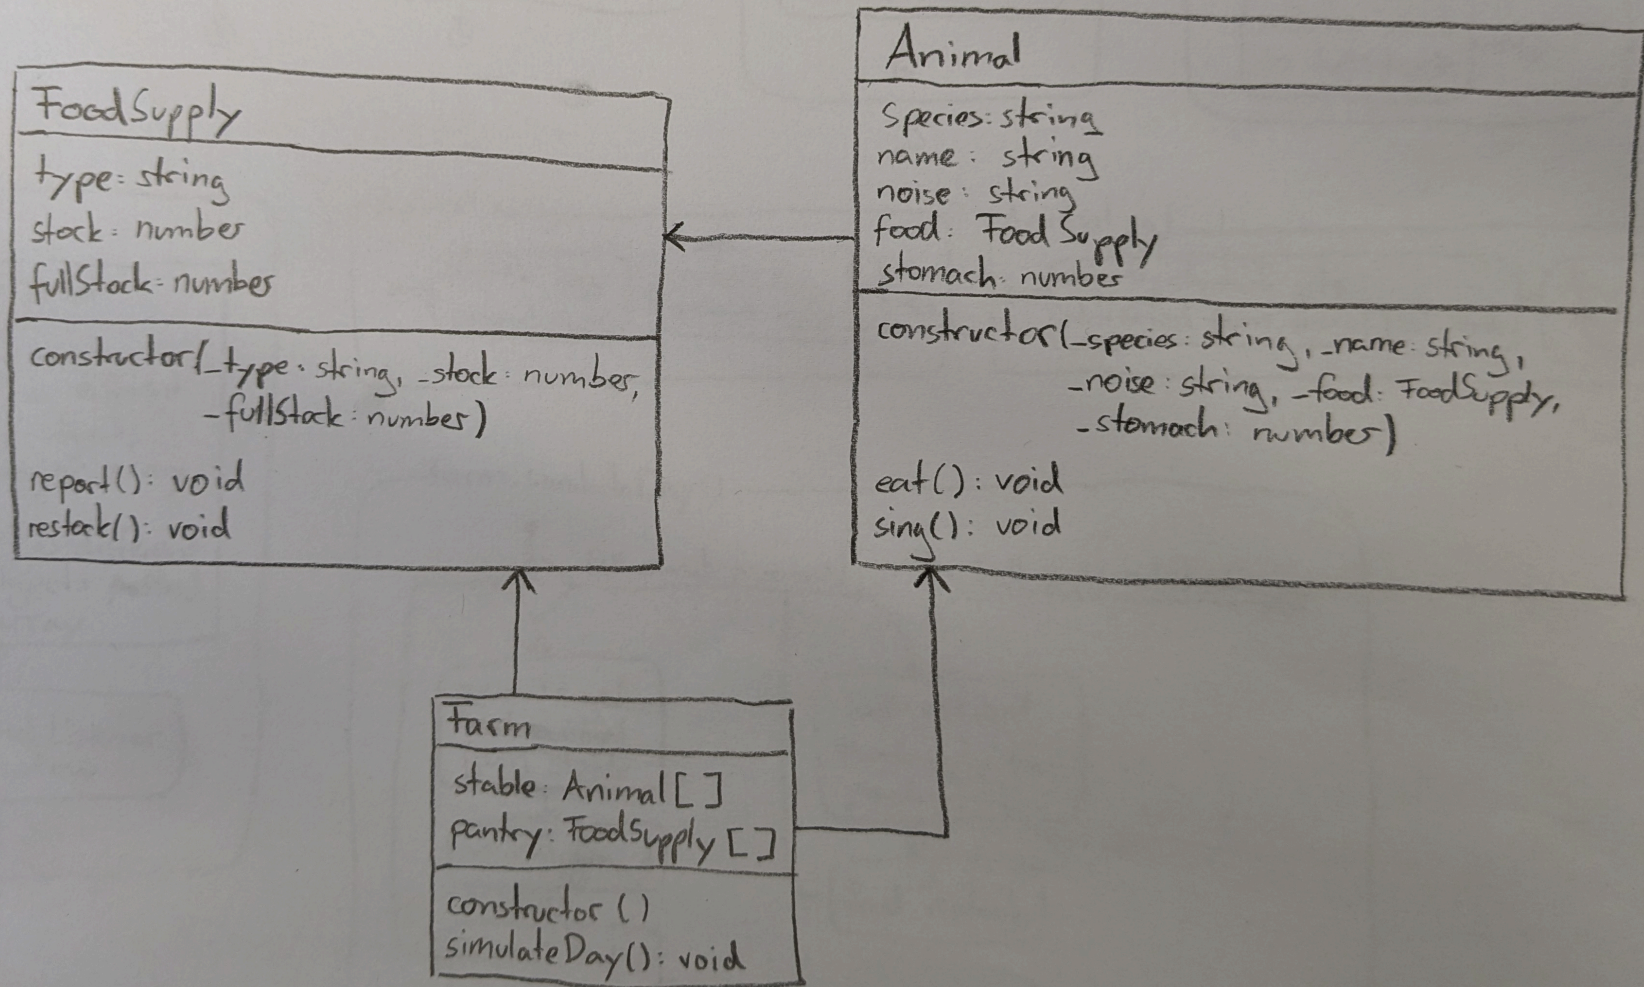 FoodSupply
type: string
stock: number
fullStock: number
constructor(_type: string, _stock: number,
_fullStock: number)
report(): void
restock(): void
Animal
Species: string
name: string
noise: string
food: FoodSupply
stomach: number
constructor(_species: string, _name: string,
_noise: string, _food: FoodSupply,
_stomach: number)
eat(): void
sing(): void
Farm
stable: Animal[]
pantry: FoodSupply[]
constructor()
simulateDay(): void